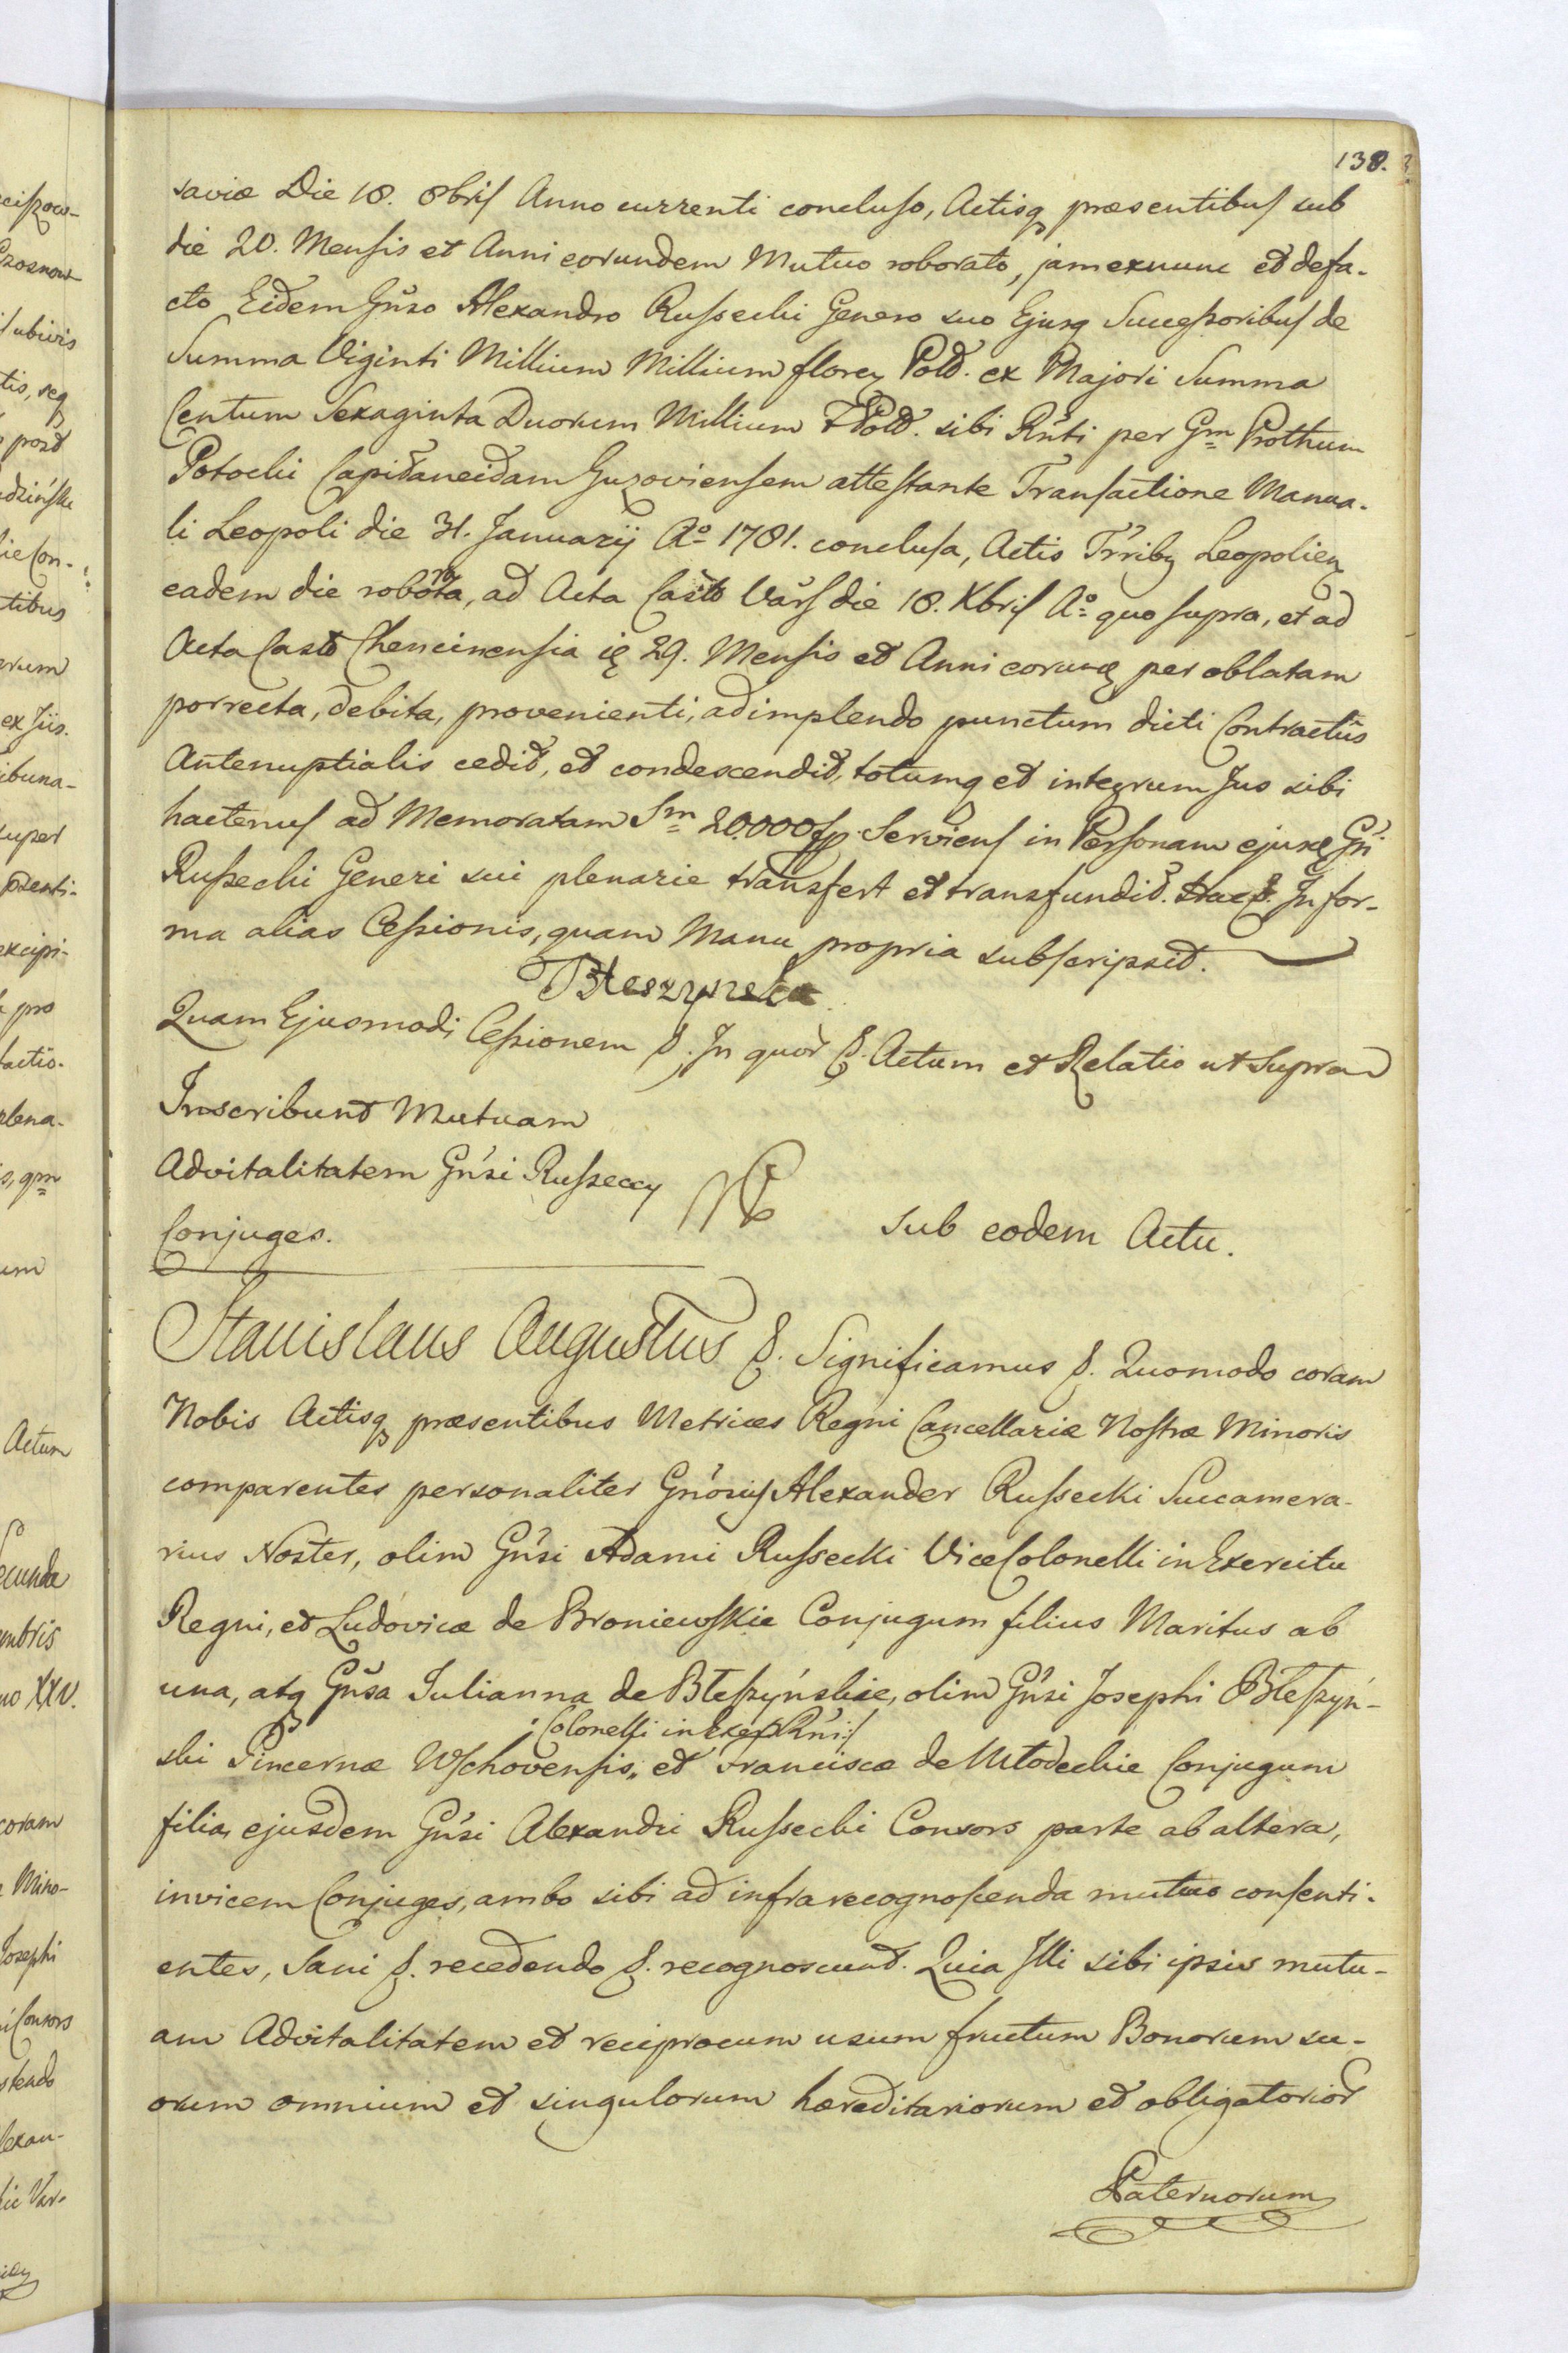 138.
saviæ Die 18. 8bris Anno currenti concluso, Actisq præsentibus sub
die 20. Mensis et Anni eorundem Mutuo roborato, jam exnunc et defa-
cto Eidem Gn̄so Alexandro Russecki Genero suo Ejusq Successoribus de
Summa Viginti Millium Millium floren Pold. ex Majori Summa
Centum Sexaginta Duorum Millium F Pold. sibi Rn̄ti per Gm Prothum
Potocki Capitaneidam Guzoviensem attestante Transactione Manua-
li Leopoli die 31. Januarij Ao 1781. conclusa, Actis Tr̄riby Leopolien
eadem die roborata, ad Acta Castr Vars die 18. Xbris Ao quo supra, et ad
Acta Castr Chencinensia ię 29. Mensis et Anni eorundę per oblatam
porrecta, debita, provenienti, adimplendo punctum dicti Contractûs
Antenuptialis cedit, et condescendit, totumq et integrum Jus sibi
hactenus ad Memoratam Sm 20.000 fp. Serviens in Personam ejusdę Gn̄
Russecki Generi sui plenarie transfert et transfundit. In for-
ma alias Cessionis, quam Manu propria subscripsit.
Błeszynska
Quam Ejusmodi Cessionem &. In quor &. Actum et Relatio ut Supra
Inscribunt Mutuam
Advitalitatem Gn̄si Russeccy
Conjuges.
Sub eodem Actu.
Stanislaus Augustus &. Significamus &. Quomodo coram
Nobis Actisq præsentibus Metrices Regni Cancellariæ Nostræ Minoris
comparentes personaliter Gn̄osus Alexander Russecki Succamera-
rius Noster, olim Gn̄si Adami Russecki ViceColonelli in Exercitu
Regni, et Ludovicæ de Broniewskie Conjugum filius Maritus ab
una, atq Gn̄sa Julianna de Błeszyńskie, olim Gn̄si Josephi Błeszyń-
: Colonelli in Exer Rn̄i :/
ski Pincernæ Wschovensis, et Franciscæ de Młodeckie Conjugum
filia, ejusdem Gn̄si Alexandri Russecki Consors parte ab altera,
invicem Conjuges, ambo sibi ad infra recognoscenda mutuo consenti-
entes, Sani &. recedendo &. recognoscunt. Quia Illi sibi ipsis mutu-
am Advitalitatem et reciprocum usum fructum Bonorum su-
orum omnium et singulorum hæreditariorum et obligatorior
Paternorum